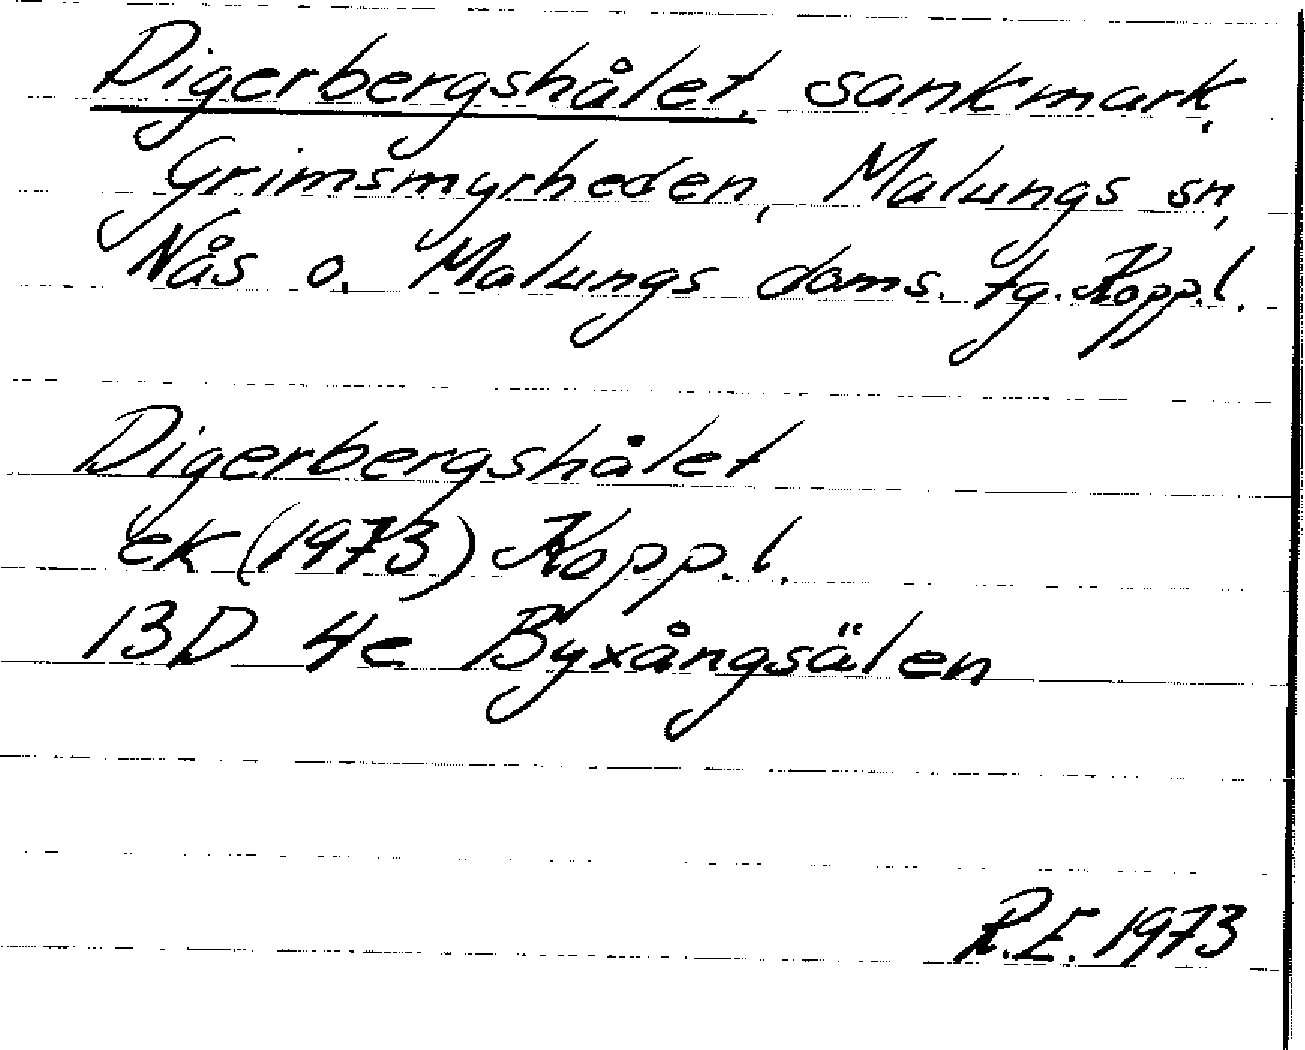 Digerbergshålet, sankmark,
Grimsmyrheden, Malungs sn,
Nås o. Malungs doms. tg. Kopp.l.
Digerbergshålet
ek (1973) Kopp.l.
13D 4e Byxångsälen
R.E. 1973